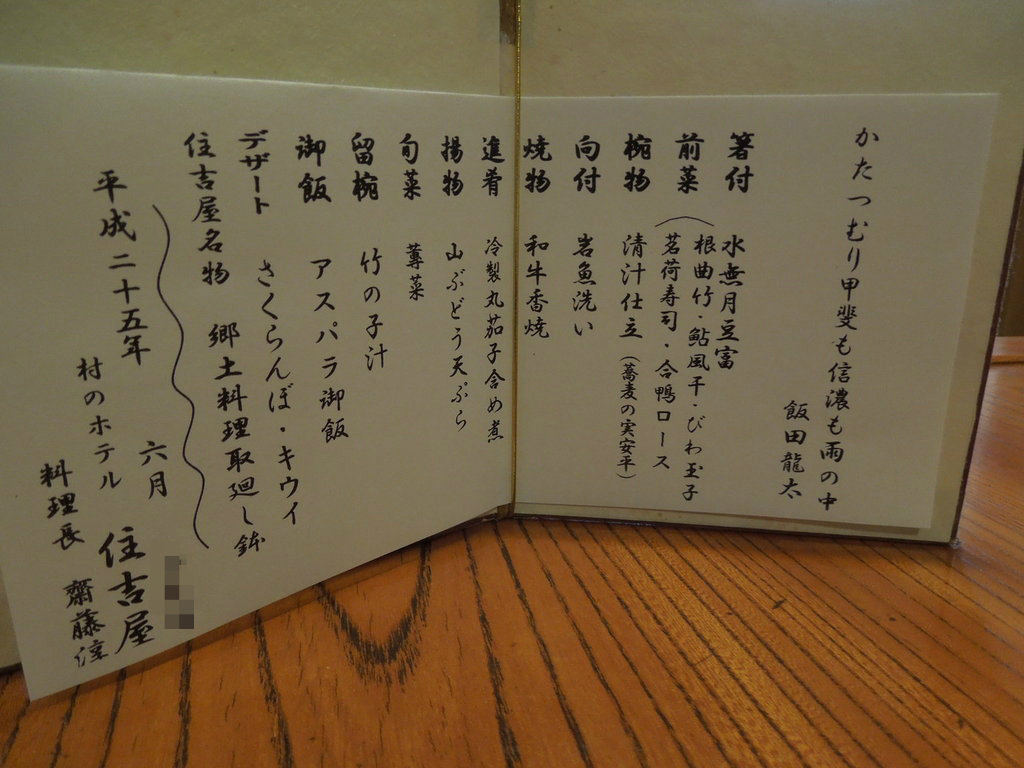 かたつむり甲斐も信濃も雨の中
飯田龍太
箸付 水無月豆富
前菜 根曲竹・鮎風干・びわ玉子
茗荷寿司・合鴨ロース
椀物 清汁仕立（蕎麦の実安平）
向付 岩魚洗い
焼物 和牛香焼
進肴 冷製丸茄子含め煮
揚物 山ぶどう天ぷら
旬菜 蓴菜
留椀 竹の子汁
御飯 アスパラ御飯
デザート さくらんぼ・キウイ
住吉屋名物 郷土料理取廻し鉢
平成二十五年 六月
村のホテル 住吉屋
料理長 齋藤淳